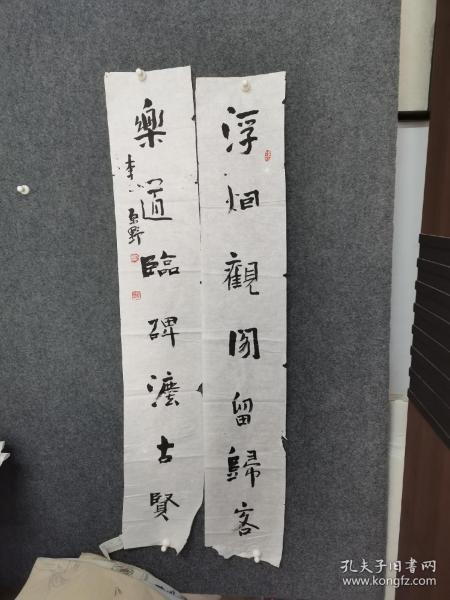 浮烟观阁留歸客
樂道臨碑法古賢
李原野
孔夫子旧书网
www.kongfz.com